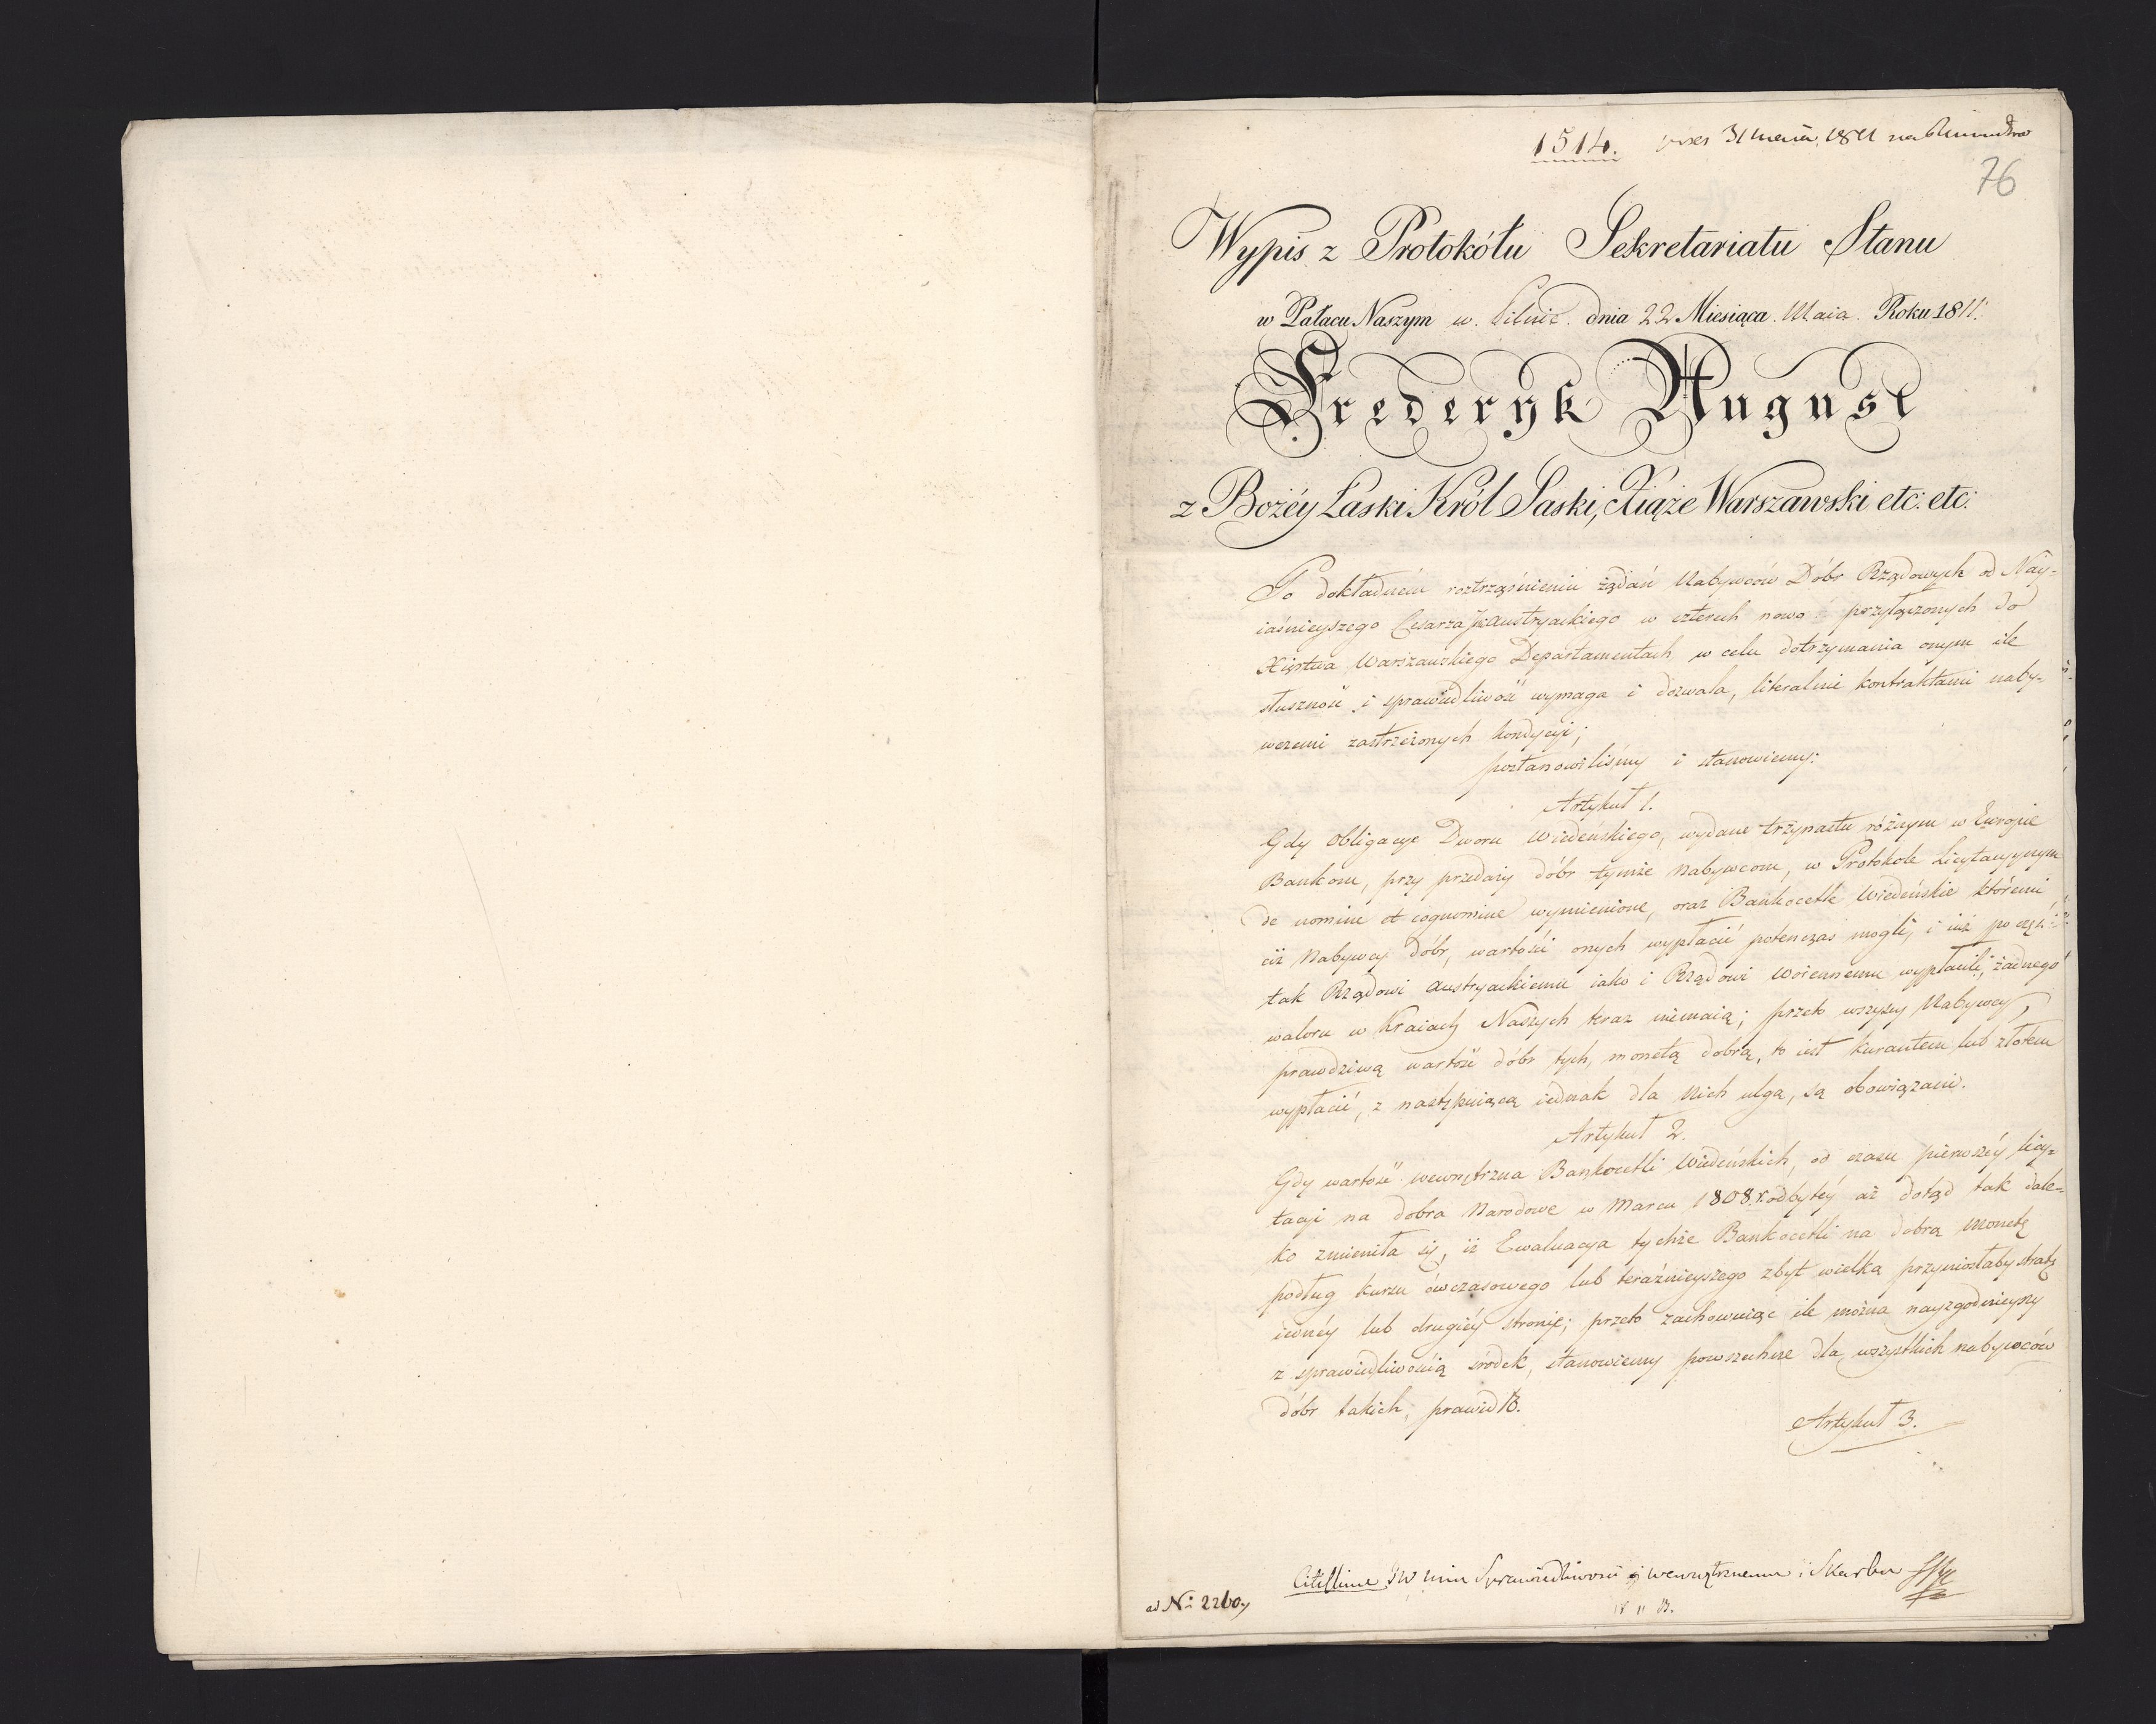 1514. 31 1811 na
76
Wypis z Protokółu Sekretariatu Stanu
w Pałacu Naszym w. Pilnic. dnia 22 Miesiąca. Maia. Roku 1811.
Frederyk August
z Bożéy Łaski Król Saski, Xiąże Warszawski etc: etc:
Po dokładném roztrząśnieniu żądań Nabywców Dóbr Rządowych od Nay-
iaśnieyszego Cesarza Austryackiego w czterech nowo przyłączonych do
Xięstwa Warszawskiego Departamentach w celu dotrzymania onym ile
słuszność i sprawiedliwość wymaga i dozwala, literalnie kontraktami naby-
wczemi zastrzeżonych kondycyi;
postanowiliśmy i stanowiemy:
Artykuł 1.
Gdy Obligacye Dworu Wiedeńskiego, wydane trzynastu różnym w Europie
Bankom, przy przedaży dóbr tymże nabywcom, w Protokole Licytacyinym
de nomine et cognomine wymienione, oraz Bankocetle Wiedeńskie któremi
ciż Nabywcy dóbr, wartość onych wypłacić potenczas mogli, i iuż po częś:
tak Rządowi Austryackiemu iako i Rządowi Woiennemu wypłacili, żadnego
waloru w Kraiach Naszych teraz niemaią; przeto wszyscy Nabywcy,
prawdziwą wartość dóbr tych, monetą dobrą, to iest kurantem lub złotem
wypłacić, z następuiącą iednak dla Nich ulgą, są obowiązani.
Artykuł 2.
Gdy wartość wewnętrzna Bankocetli Wiedeńskich, od czasu pierwszéy licy-
tacji na dobra Narodowe w Marcu 1808. r. odbytéy aż dotąd tak dale-
ko zmieniła się, iż Ewaluacya tychże Bankocetli na dobrą monetę
podług kursu ówczasowego lub teraźnieyszego zbyt wielką przyniosłaby stratę
iednéy lub drugiéy stronie; przeto zachowuiąc ile można nayzgodnieyszy
z sprawiedliwością środek, stanowiemy powszechne dla wszystkich nabywców
dóbr takich, prawidło.
Artykuł 3.
Citissime JW Sprawiedliwości wewnętrznemu i Skarbu
ad No: 2260.